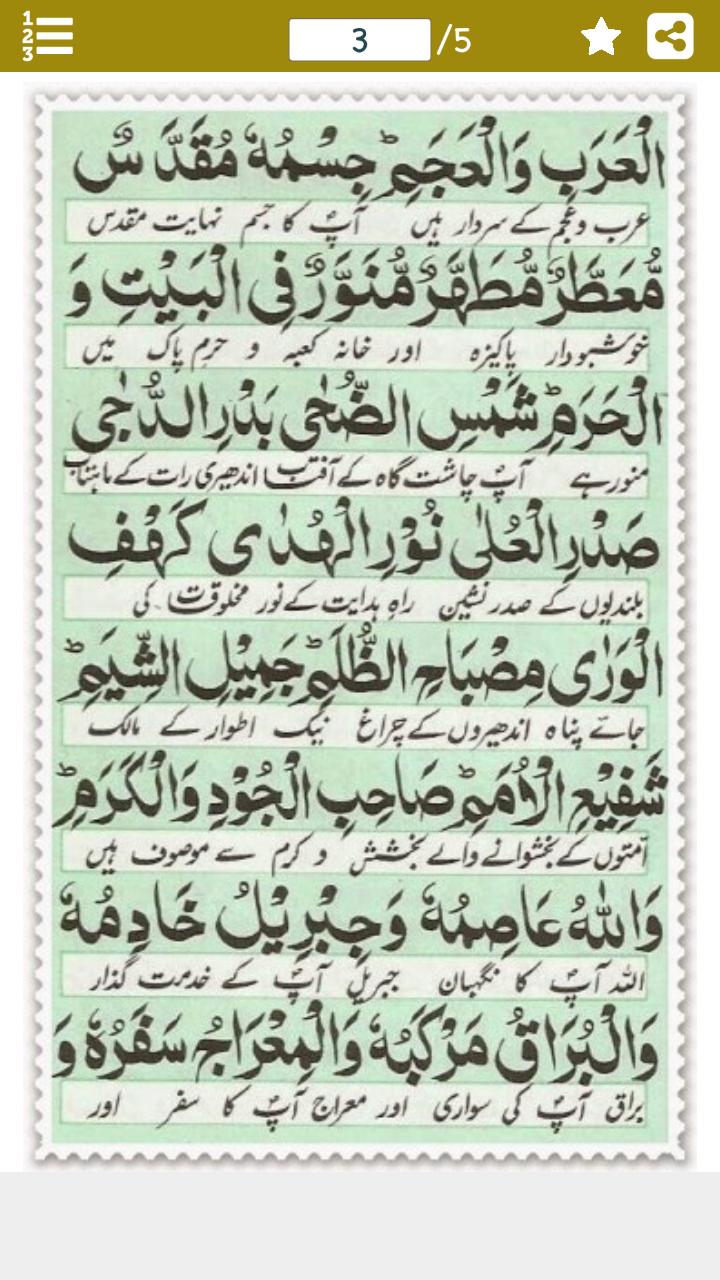 1
2
3
3 /5
الْعَرَبِ وَالْعَجَمِ ؕ جِسْمُهٗ مُقَدَّسٌ
عرب وعجم کے سردار ہیں آپؐ کا جسم نہایت مقدس
مُّعَطَّرٌ مُّطَهَّرٌ مُّنَوَّرٌ فِی الْبَیْتِ وَ
خوشبودار پاکیزہ اور خانہ کعبہ و حرم پاک میں
الْحَرَمِ ؕ شَمْسِ الضُّحٰی بَدْرِ الدُّجٰی
منور ہے آپؐ چاشت گاہ کے آفتاب اندھیری رات کے ماہتاب
صَدْرِ الْعُلٰی نُوْرِ الْهُدٰی كَهْفِ
بلندیوں کے صدر نشین راہِ ہدایت کے نور مخلوقات کی
الْوَرٰی مِصْبَاحِ الظُّلَمِ ؕ جَمِیْلِ الشِّیَمِ ؕ
جائے پناہ اندھیروں کے چراغ نیک اطوار کے مالک
شَفِیْعِ الْاُمَمِ ؕ صَاحِبِ الْجُوْدِ وَالْكَرَمِ ؕ
اُمتوں کے بخشوانے والے بخشش و کرم سے موصوف ہیں
وَاللّٰهُ عَاصِمُهٗ وَجِبْرِیْلُ خَادِمُهٗ
اللہ آپؐ کا نگہبان جبریل آپؐ کے خدمت گذار
وَالْبُرَاقُ مَرْكَبُهٗ وَالْمِعْرَاجُ سَفَرُهٗ وَ
براق آپؐ کی سواری اور معراج آپؐ کا سفر اور